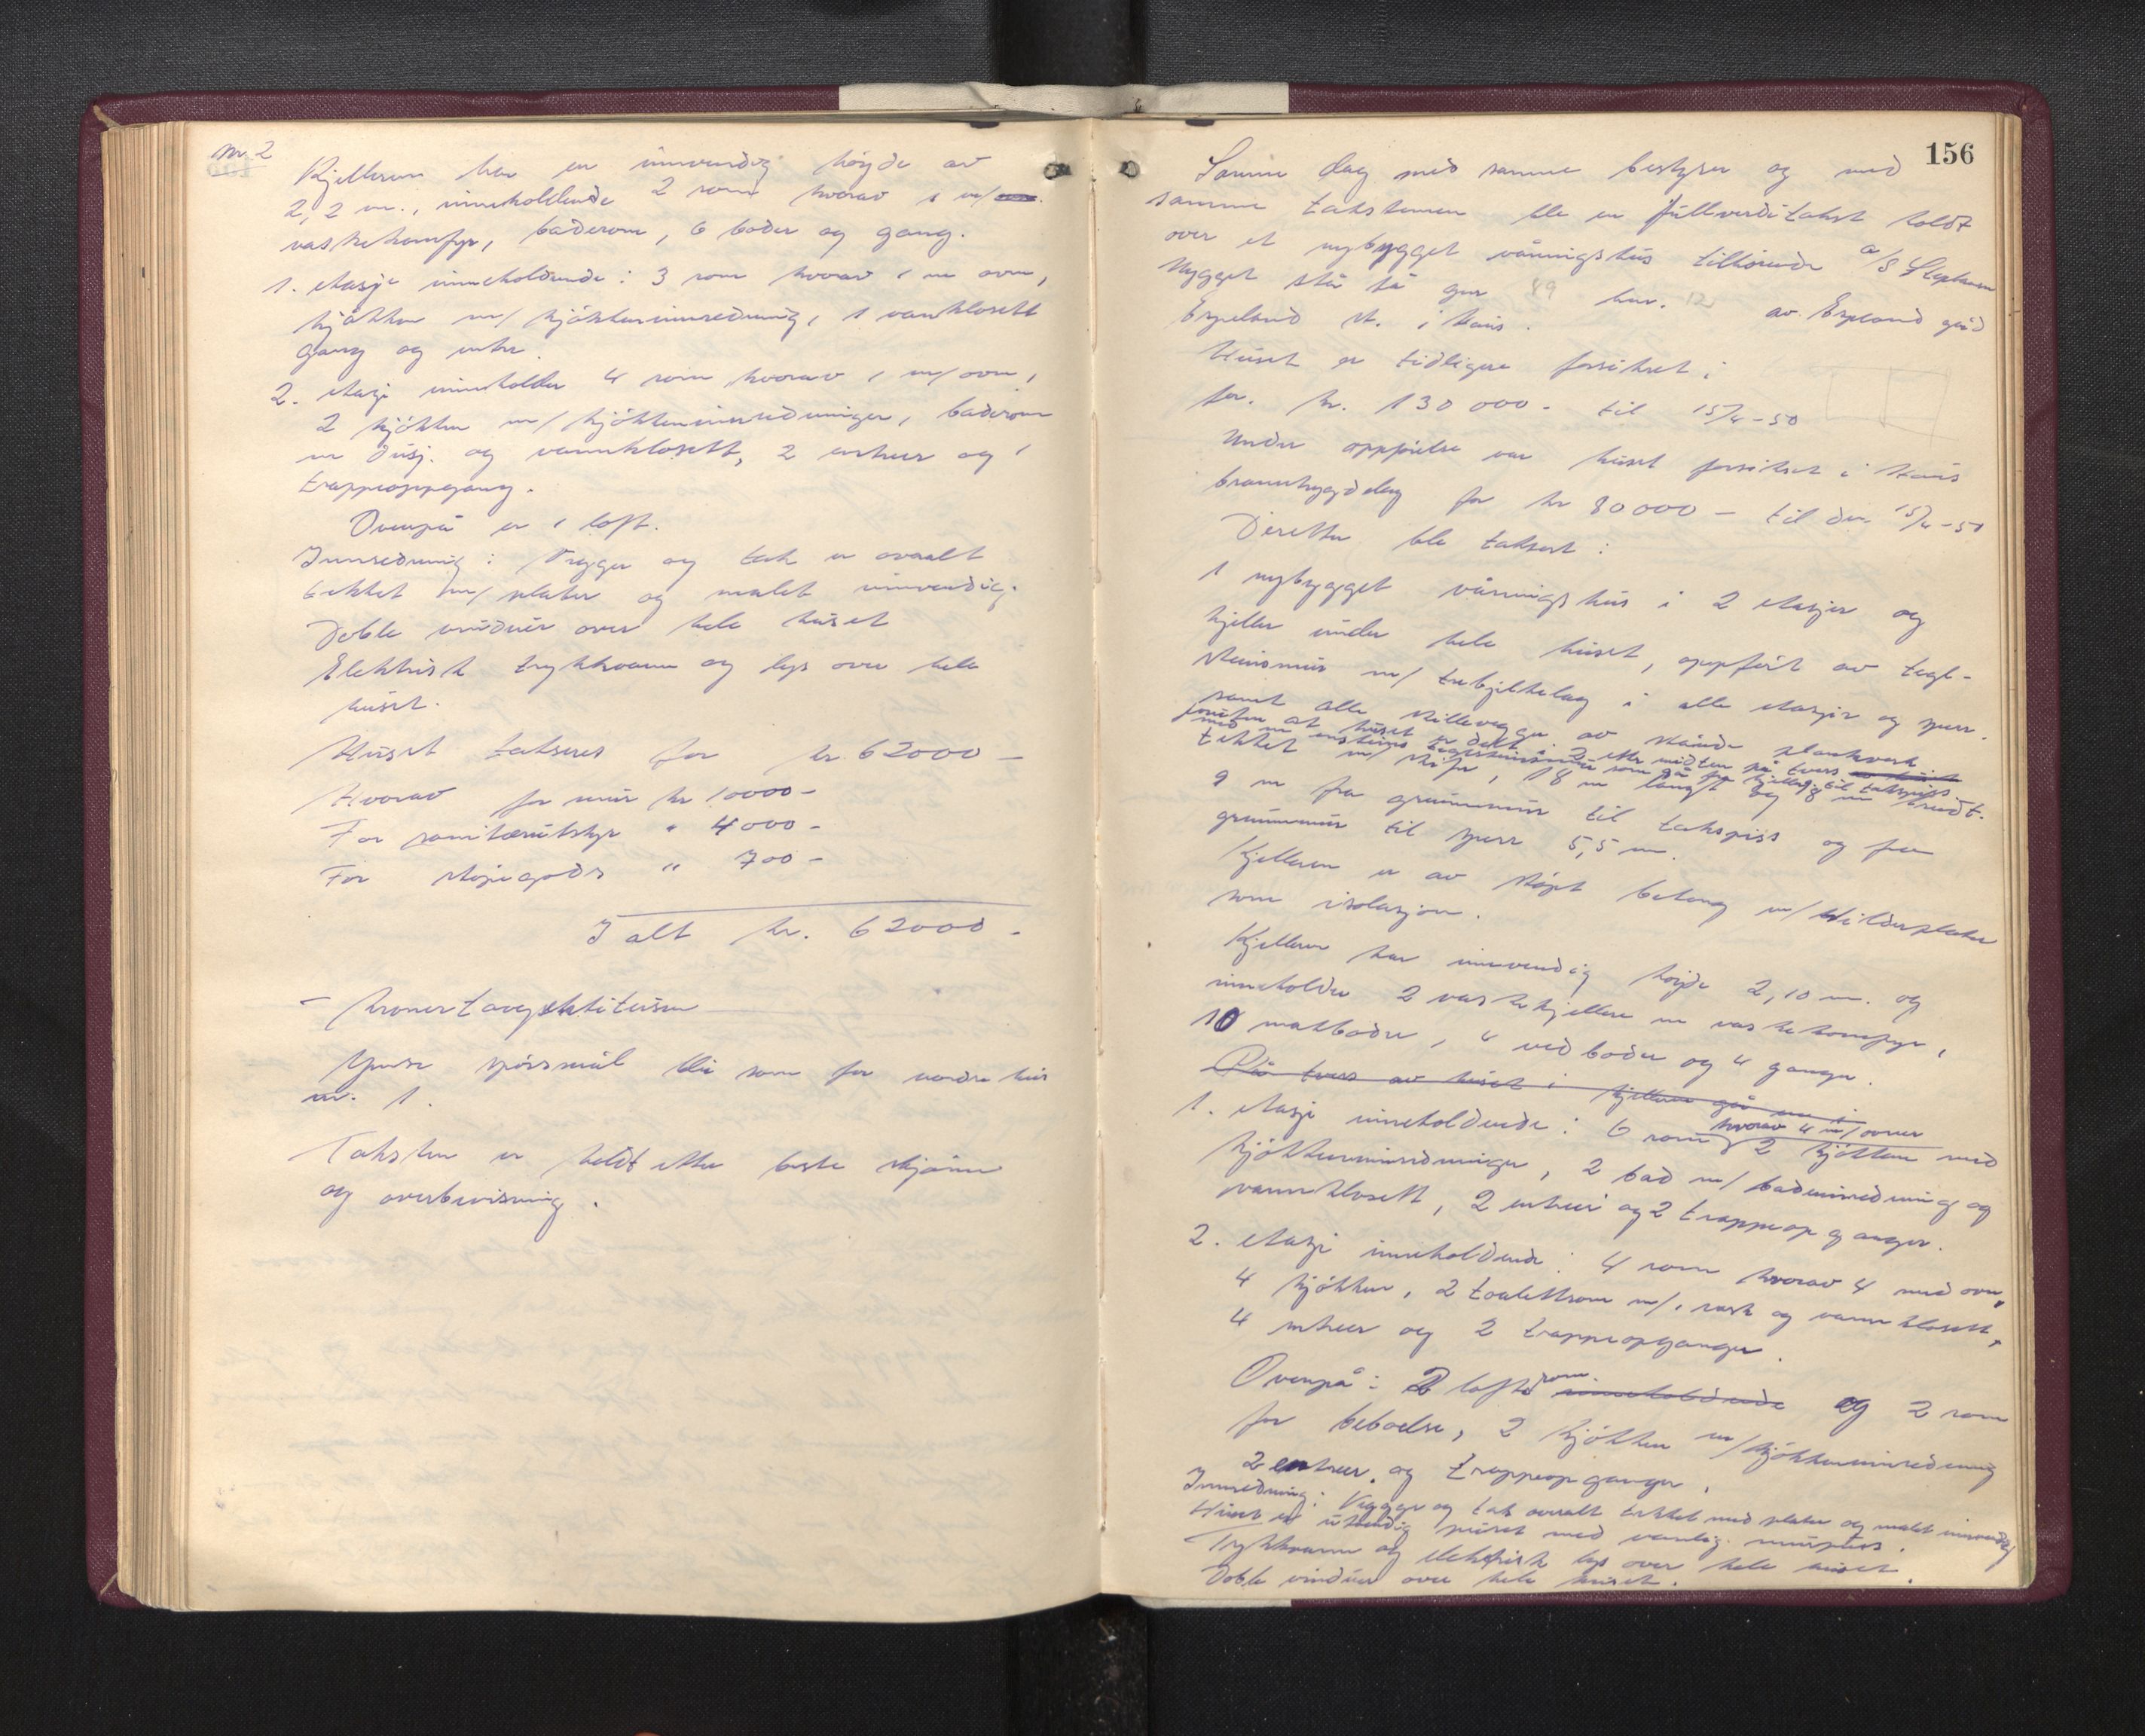 nr 2
Kjelleren har en innvendig høyde av
2,2 m., inneholdende 2 rom hvorav 1 m/
vaskekomfyr, baderom, 6 boder og gang.
1. etasje inneholdende: 3 rom hvorav 1 m ovn,
kjøkken m/ kjøkkeninnredning, 1 vannklosett
gang og entre.
2. etasje inneholder 4 rom hvorav 1 m/ ovn,
2 kjøkken m/ kjøkkeninnredninger, baderom
m dusj. og vannklosett, 2 entreer og 1
trappeoppgang.
Ovenpå er 1 loft.
Innredning: Vegger og tak er overalt
tekket m/ plater og malt innvendig.
Doble vinduer over hele huset
Elektrisk trykkvann og lys over hele
huset.
Huset takseres for kr 62000 -
Hvorav for mur kr 10000 -
For sanitærutstyr " 4000 -
For støpegods " 700 -
I alt kr. 62000 -
Øvrige spørsmål blir som for vordne hus
nr. 1.
Taksten er holdt etter beste skjønn
og overbevisning.
156
Samme dag med samme bestyrer og med
samme takstmenn ble en fullverditakst holdt
over et nybygget våningshus tilhørende A/S Stephansen
bygget stå på gnr 89 bnr. 12 av Espeland gård
Espeland st. i Haus.
Huset er tidligere forsikret i
for kr. 130 000 - til 15/4-50
Under oppførelse var huset forsikret i Haus
brannbygdelag for kr 80000 - til den 15/4-50
Deretter ble taksert:
1 nybygget våningshus i 2 etasjer og
kjeller under hele huset, oppført av tegl-
steinsmur m/ trebjelkelag i alle etasjer og sperr.
samt alle skillevegger av stående plankverk
foruten at huset er delt i 2 etter midten på tvers av huset
med en ensteins teglsteinsmur som går fra kjeller til takspiss
tekket m/ skifer, 18 m langt og 8 m bredt.
9 m fra grunnmur til takspiss og fra
grunnmur til sperr 5,5 m.
Kjelleren er av støpt betong m/ plater
som isolasjon.
Kjelleren har innvendig høyde 2,10 m. og
inneholder 2 vaskekjellere m vaskekomfyr,
10 matboder, 4 vedboder og 4 ganger.
På tvers av huset i kjelleren går en i
1. etasje inneholdende: 6 rom hvorav 4 m/ ovner 2 kjøkken med
kjøkkeninnredninger, 2 bad m/ badeinnredning og
vannklosett, 2 entreer og 2 trappeopganger.
2. etasje inneholdende: 4 rom hvorav 4 med ovn,
4 kjøkken, 2 toalettrom m/ 1 vask og vannklosett,
4 entreer og 2 trappeopganger.
Ovenpå: 2 lofts rom. inneholdende og 2 rom
for beboelse, 2 kjøkken m/ kjøkkeninnredning
2 entreer. og trappeopganger.
Innredning: Vegger og tak overalt tekket med plater og malt innvendig
Huset er utvendig pusset med vanlig murpuss.
Trykkvann og elektrisk lys over hele huset.
Doble vinduer over hele huset.